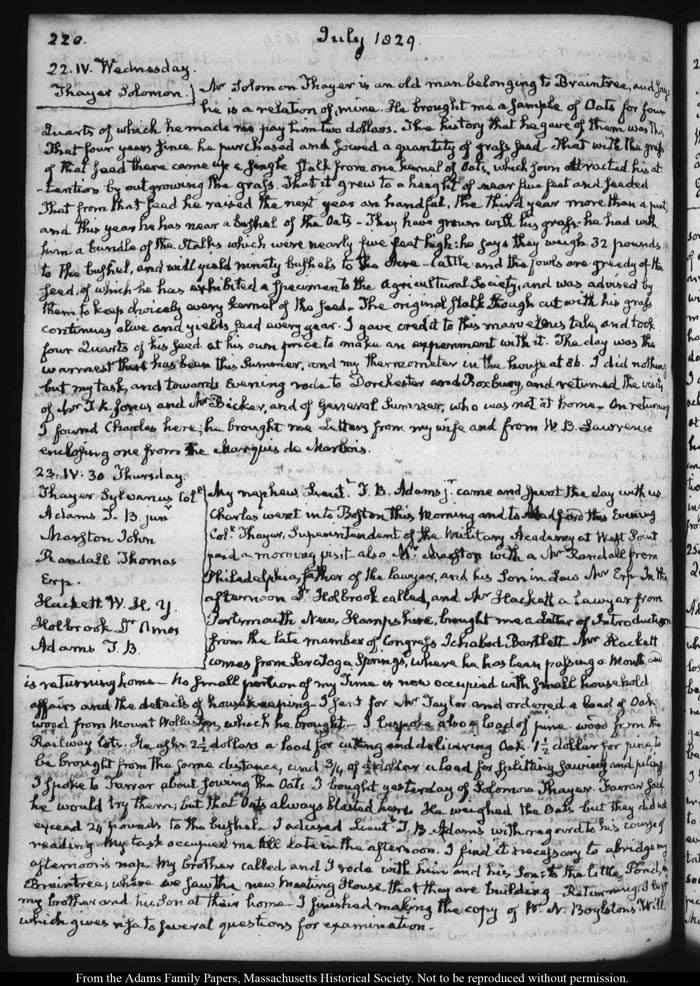 220.
July 1829.
22. IV. Wednesday.
Thayer Solomon. } Mr Solomon Thayer is an old man belonging to Braintree, and says
he is a relation of mine. He brought me a sample of Oats for four
Quarts of which he made me pay him two dollars. The history that he gave of them was this
That four years since he purchased and sowed a quantity of grass seed. That with the grass
of that seed there came up a single stalk from one kernel of Oats, which soon attracted his at
-tention by outgrowing the grass. That it grew to a height of near five feet and seeded
That from that seed he raised the next year an handful, the third year more than a pint,
and this year he has near a bushel of the Oats - They have grown with his grass. he had with
him a bundle of the Stalks which were nearly five feet high: he says they weigh 32 pounds
to the bushel, and will yield ninety bushels to the Acre - Cattle and the fowls are greedy of the
feed, of which he has exhibited a specimen to the Agricultural Society, and was advised by
them to keep choicely every kernel of the seed. The original stalk though cut with his grass
continues alive and yields seed every year. I gave credit to this marvellous tale, and took
four Quarts of his seed at his own price to make an experiment with it. The day was the
warmest there has been this Summer, and my thermometer in the house at 86. I did nothing
but my task, and towards Evening rode to Dorchester and Roxbury, and returned the visits
of Mr T. K. Jones and Mr Bicker, and of General Sumner, who was not at home. On returning
I found Charles here; he brought me Letters from my wife and from W. B. Lawrence
enclosing one from the Marquis de Marbois.
23. IV: 30 Thursday.
Thayer Sylvanus Coll
Adams T. B. junr
Marston John
Randall Thomas
Erp.
Hackett W. H. Y.
Holbrook Dr Amos
Adams T. B.
My nephew Lieutt T. B. Adams jr. came and spent the day with us
Charles went into Boston this Morning and to Medford this Evening
Coll Thayer, Superintendent of the Military Academy at West Point
paid a morning visit also Mr Marston with a Mr Randall from
Philadelphia, father of the lawyer, and his Son in Law Mr Erp. In the
afternoon Dr Holbrook called, and Mr Hackett a Lawyer from
Portsmouth New Hampshire, brought me a Letter of Introduction
from the late member of Congress Ichabod Bartlett. Mr Hackett
comes from Saratoga Springs, where he has been passing a Month and
is returning home - No small portion of my Time is now occupied with small household
affairs and the details of housekeeping - I sent for Mr Taylor and ordered a load of Oak
wood from Mount Wollaston, which he brought - I bespoke also a load of pine wood from the
Railway Lots. He asks 2½ dollars a load for cutting and delivering Oak. 1½ dollar for pine, to
be brought from the same distance, and ¾ of a dollar a load for splitting sawing and piling
I spoke to Farrar about sowing the Oats I bought yesterday of Solomon Thayer. Farrar said
he would try them; but that Oats always blasted here. He weighed the Oats but they did not
exceed 24 pounds to the bushel. I advised Lieutt T. B. Adams with regard to his course of
reading. My task occupied me till late in the afternoon. I find it necessary to abridge my
afternoon's nap. My brother called and I rode with him and his Son to the little Pond, in
Braintree; where we saw the new Meeting House that they are building. Returning I left
my brother and his Son at their home. I finished making the copy of W. N. Boylston's Will.
which gives rise to several questions for examination.
From the Adams Family Papers, Massachusetts Historical Society. Not to be reproduced without permission.